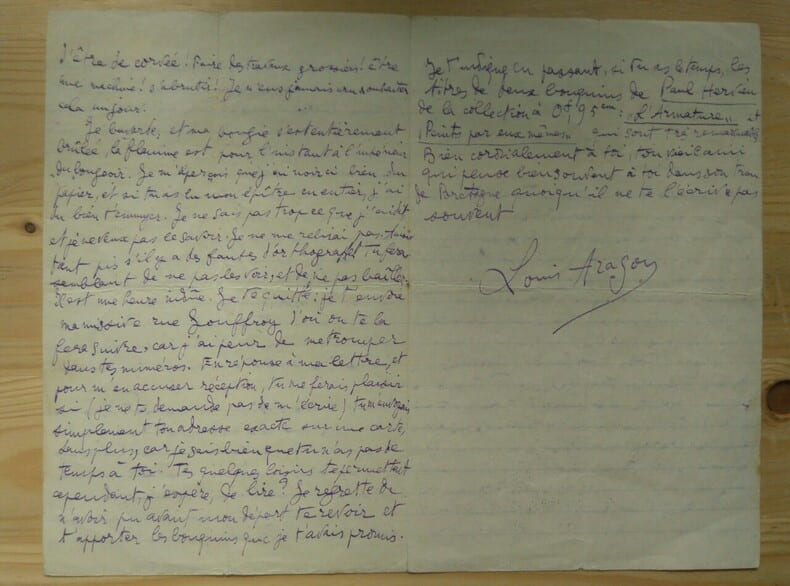 d'être de corvée! Faire des travaux grossiers! être
une machine! s'abrutir! Je n'eus jamais cru souhaiter
cela un jour!
Je bavarde, et ma bougie s'est entièrement
brûlée, la flamme est pour l'instant à l'intérieur
du bougeoir. Je m'aperçois que j'ai noirci bien du
papier, et si tu as lu mon épître en entier, j'ai
du bien t'ennuyer. Je ne sais pas trop ce que j'ai dit
et je ne veux pas le savoir. Je ne me relirai pas:
tant pis s'il y a des fautes d'orthographe, tu feras
semblant de ne pas les voir, et de ne pas bailler.
Il est une heure indue. Je te quitte: je t'envoie
ma missive rue Jouffroy d'où on te la
fera suivre, car j'ai peur de me tromper
dans tes numéros. En réponse à ma lettre, et
pour m'en accuser réception, tu me ferais plaisir
si (je ne te demande pas de m'écrire) tu m'envoyais
simplement ton adresse exacte sur une carte,
sans plus, car je sais bien que tu n'as pas de
temps à toi. Tes quelques loisirs te permettent
cependant, j'espère, de lire? Je regrette de
n'avoir pu avant mon départ te revoir et
t'apporter les bouquins que je t'avais promis.
Je t'indique en passant, si tu as le temps, les
titres de deux bouquins de Paul Hervieu
de la collection à 0f,95cm: "L'Armature" et
"Peints par eux mêmes" qui sont très remarquables
Bien cordialement à toi, ton vieil ami
qui pense bien souvent à toi dans son trou
de Bretagne quoiqu'il ne te l'écrive pas
souvent
Louis Aragon